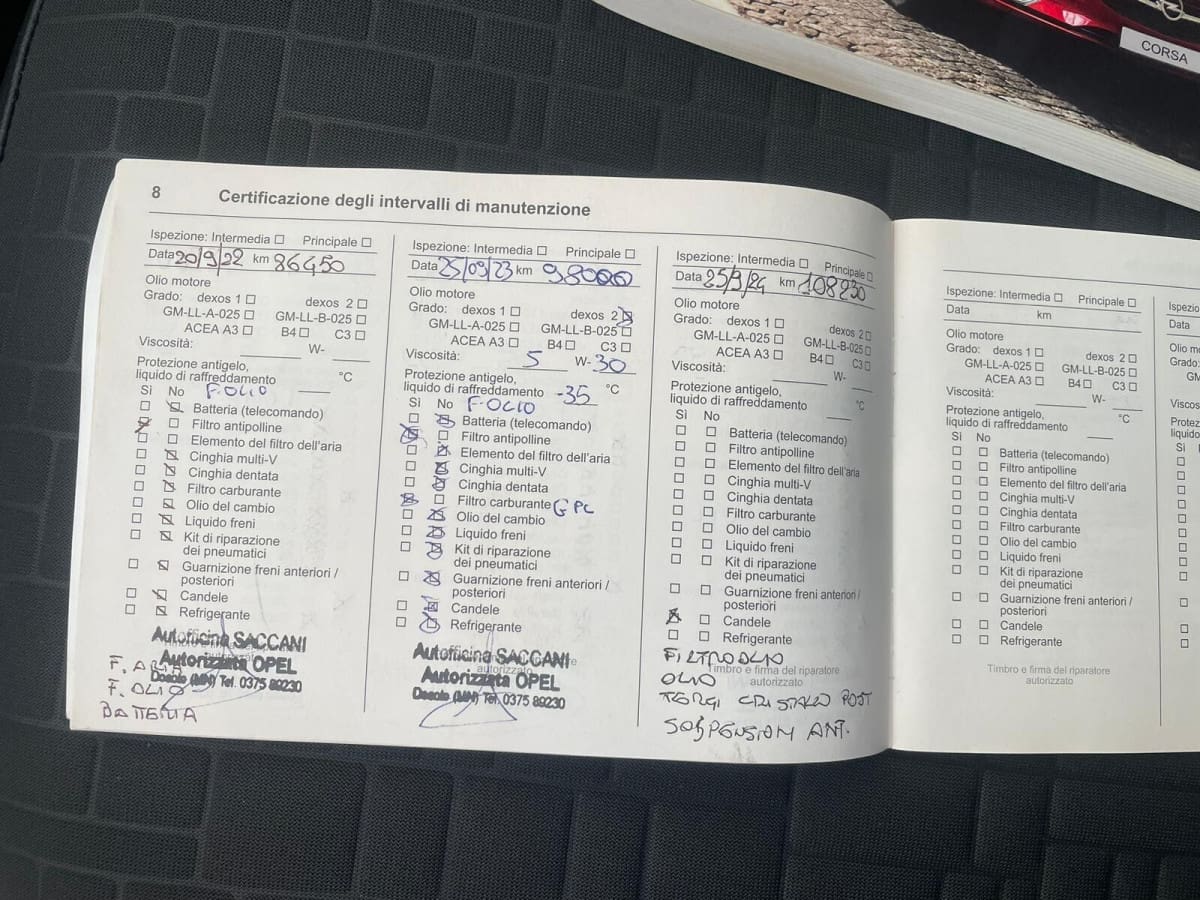 CORSA
8 Certificazione degli intervalli di manutenzione
Ispezione: Intermedia ☐ Principale ☐
Data 20/9/22 km 86450
Olio motore
Grado: dexos 1 ☐ dexos 2 ☐
GM-LL-A-025 ☐ GM-LL-B-025 ☐
ACEA A3 ☐ B4 ☐ C3 ☐
Viscosità: W-
Protezione antigelo,
liquido di raffreddamento °C
Sì No F.OLIO
☐ ☒ Batteria (telecomando)
☒ ☐ Filtro antipolline
☐ ☐ Elemento del filtro dell'aria
☐ ☒ Cinghia multi-V
☐ ☒ Cinghia dentata
☐ ☒ Filtro carburante
☐ ☒ Olio del cambio
☐ ☒ Liquido freni
☐ ☒ Kit di riparazione
dei pneumatici
☐ ☒ Guarnizione freni anteriori /
posteriori
☐ ☒ Candele
☐ ☒ Refrigerante
Autofficina SACCANI
Autorizzata OPEL
Dosolo (MN) Tel. 0375 89230
F. ARIA
F. OLIO
BATTERIA
Ispezione: Intermedia ☐ Principale ☐
Data 25/09/23 km 98000
Olio motore
Grado: dexos 1 ☐ dexos 2 ☒
GM-LL-A-025 ☐ GM-LL-B-025 ☐
ACEA A3 ☐ B4 ☐ C3 ☐
Viscosità: 5 W-30
Protezione antigelo,
liquido di raffreddamento -35 °C
Sì No F.OLIO
☐ ☒ Batteria (telecomando)
☒ ☐ Filtro antipolline
☐ ☒ Elemento del filtro dell'aria
☐ ☒ Cinghia multi-V
☐ ☒ Cinghia dentata
☒ ☐ Filtro carburante GPL
☐ ☒ Olio del cambio
☐ ☒ Liquido freni
☐ ☒ Kit di riparazione
dei pneumatici
☐ ☒ Guarnizione freni anteriori /
posteriori
☐ ☒ Candele
☐ ☒ Refrigerante
autorizzato
Autofficina SACCANI
Autorizzata OPEL
Dosolo (MN) Tel. 0375 89230
Ispezione: Intermedia ☐ Principale ☐
Data 25/9/24 km 108230
Olio motore
Grado: dexos 1 ☐ dexos 2 ☐
GM-LL-A-025 ☐ GM-LL-B-025 ☐
ACEA A3 ☐ B4 ☐ C3 ☐
Viscosità: W-
Protezione antigelo,
liquido di raffreddamento °C
Sì No
☐ ☐ Batteria (telecomando)
☐ ☐ Filtro antipolline
☐ ☐ Elemento del filtro dell'aria
☐ ☐ Cinghia multi-V
☐ ☐ Cinghia dentata
☐ ☐ Filtro carburante
☐ ☐ Olio del cambio
☐ ☐ Liquido freni
☐ ☐ Kit di riparazione
dei pneumatici
☐ ☐ Guarnizione freni anteriori /
posteriori
☒ ☐ Candele
☐ ☐ Refrigerante
FILTRO OLIO
Timbro e firma del riparatore
autorizzato
OLIO
TERGI CRISTALLO POST
SOSPENSIONI ANT.
Ispezione: Intermedia ☐ Principale ☐
Data km
Olio motore
Grado: dexos 1 ☐ dexos 2 ☐
GM-LL-A-025 ☐ GM-LL-B-025 ☐
ACEA A3 ☐ B4 ☐ C3 ☐
Viscosità: W-
Protezione antigelo,
liquido di raffreddamento °C
Sì No
☐ ☐ Batteria (telecomando)
☐ ☐ Filtro antipolline
☐ ☐ Elemento del filtro dell'aria
☐ ☐ Cinghia multi-V
☐ ☐ Cinghia dentata
☐ ☐ Filtro carburante
☐ ☐ Olio del cambio
☐ ☐ Liquido freni
☐ ☐ Kit di riparazione
dei pneumatici
☐ ☐ Guarnizione freni anteriori /
posteriori
☐ ☐ Candele
☐ ☐ Refrigerante
Timbro e firma del riparatore
autorizzato
Data
Grado:
Sì